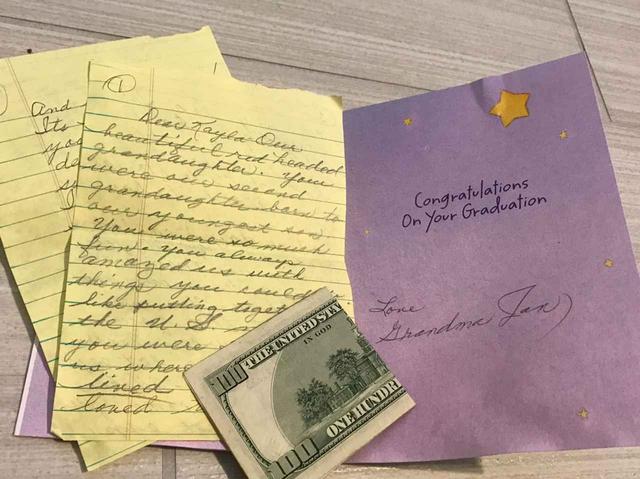 And
Its
you
①
Dear Kayla Our
beautiful red headed
grandaughter. You
were our second
grandaughter born to
our youngest son.
You were so much
fun. you always
amazed us with
things you could
like putting toget
the U.S
you were
us where
lived
loved
Congratulations
On Your Graduation
Love
Grandma Jan
100
THE UNITED STA
IN GOD
100
ONE HUNDR